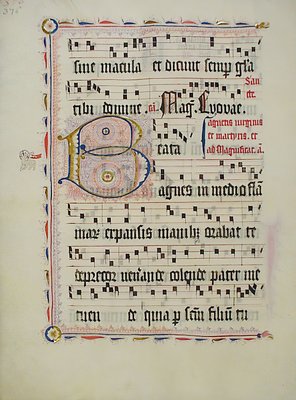 sine macula et dicunt semp gla
San
cte.
tibi domine. añ. Mag. Evovae.
Agnetis virginis
et martyris. et
ad Magnificat. a.
Beata
agnes in medio flā
mar expansis manib orabat te
deprecor venerande colende pater me
tuen de quia p scm filiū tu